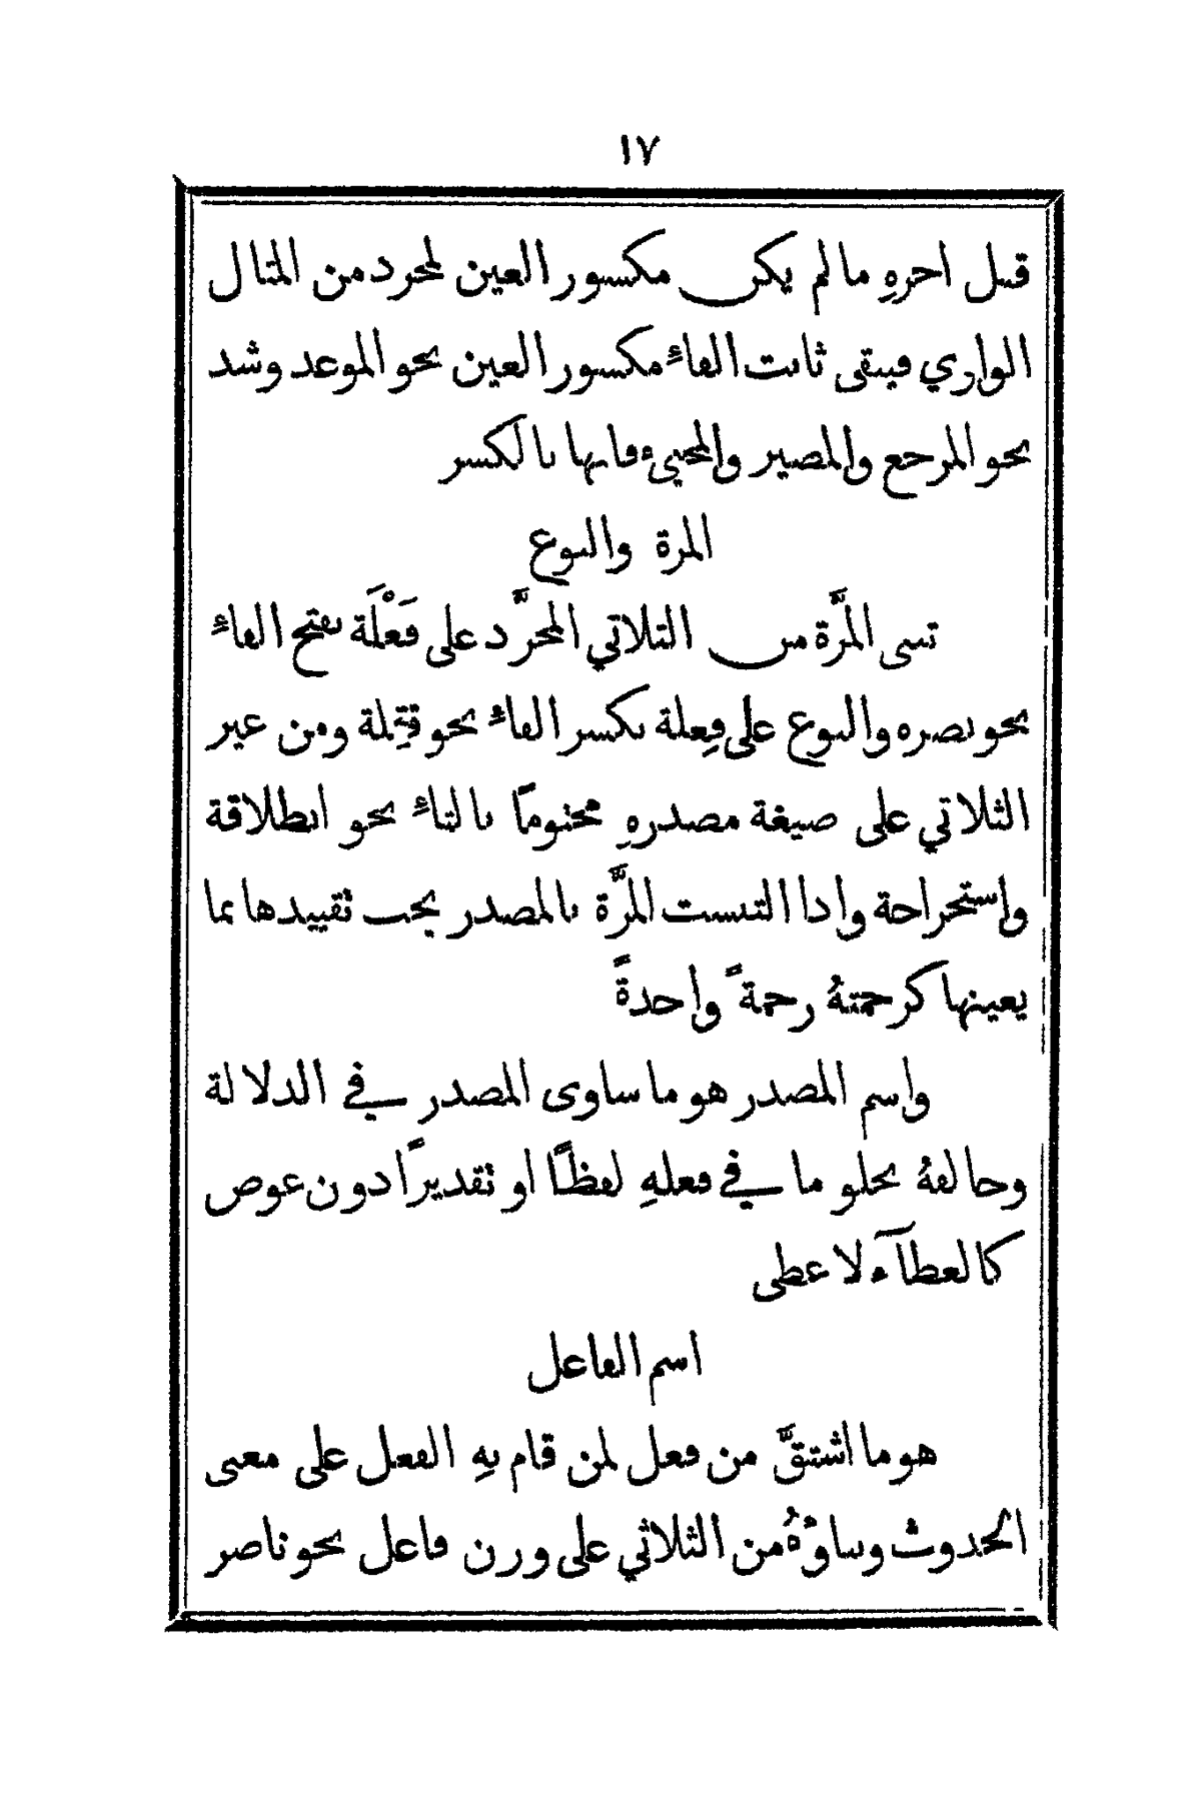 ١٧
قبل اخرهِ ما لم يكن مكسور العين لمجرد من المثال
الواوي فيبقى ثابت الفاءِ مكسور العين نحو الموعد وشذ
نحو المرجع والمصير والمجيء فانها بالكسر
المرة والنوع
تبنى المرَّة من الثلاثي المجرَّد على فَعْلَة بفتح الفاءِ
نحو نصره والنوع على فِعلة بكسر الفاءِ نحو قِتلة ومن غير
الثلاثي على صيغة مصدرهِ مختومًا بالتاءِ نحو انطلاقة
واستخراجة واذا التبست المرَّة بالمصدر يجب تقييدها بما
يعينها كرحمتهُ رحمةً واحدةً
واسم المصدر هو ما ساوى المصدر في الدلالة
وخالفهُ بخلو ما في فعلهِ لفظًا او تقديرًا دون عوض
كالعطآء لاعطى
اسم الفاعل
هو ما اشتقَّ من فعل لمن قام بهِ الفعل على معنى
الحدوث وبناؤهُ من الثلاثي على وزن فاعل نحو ناصر